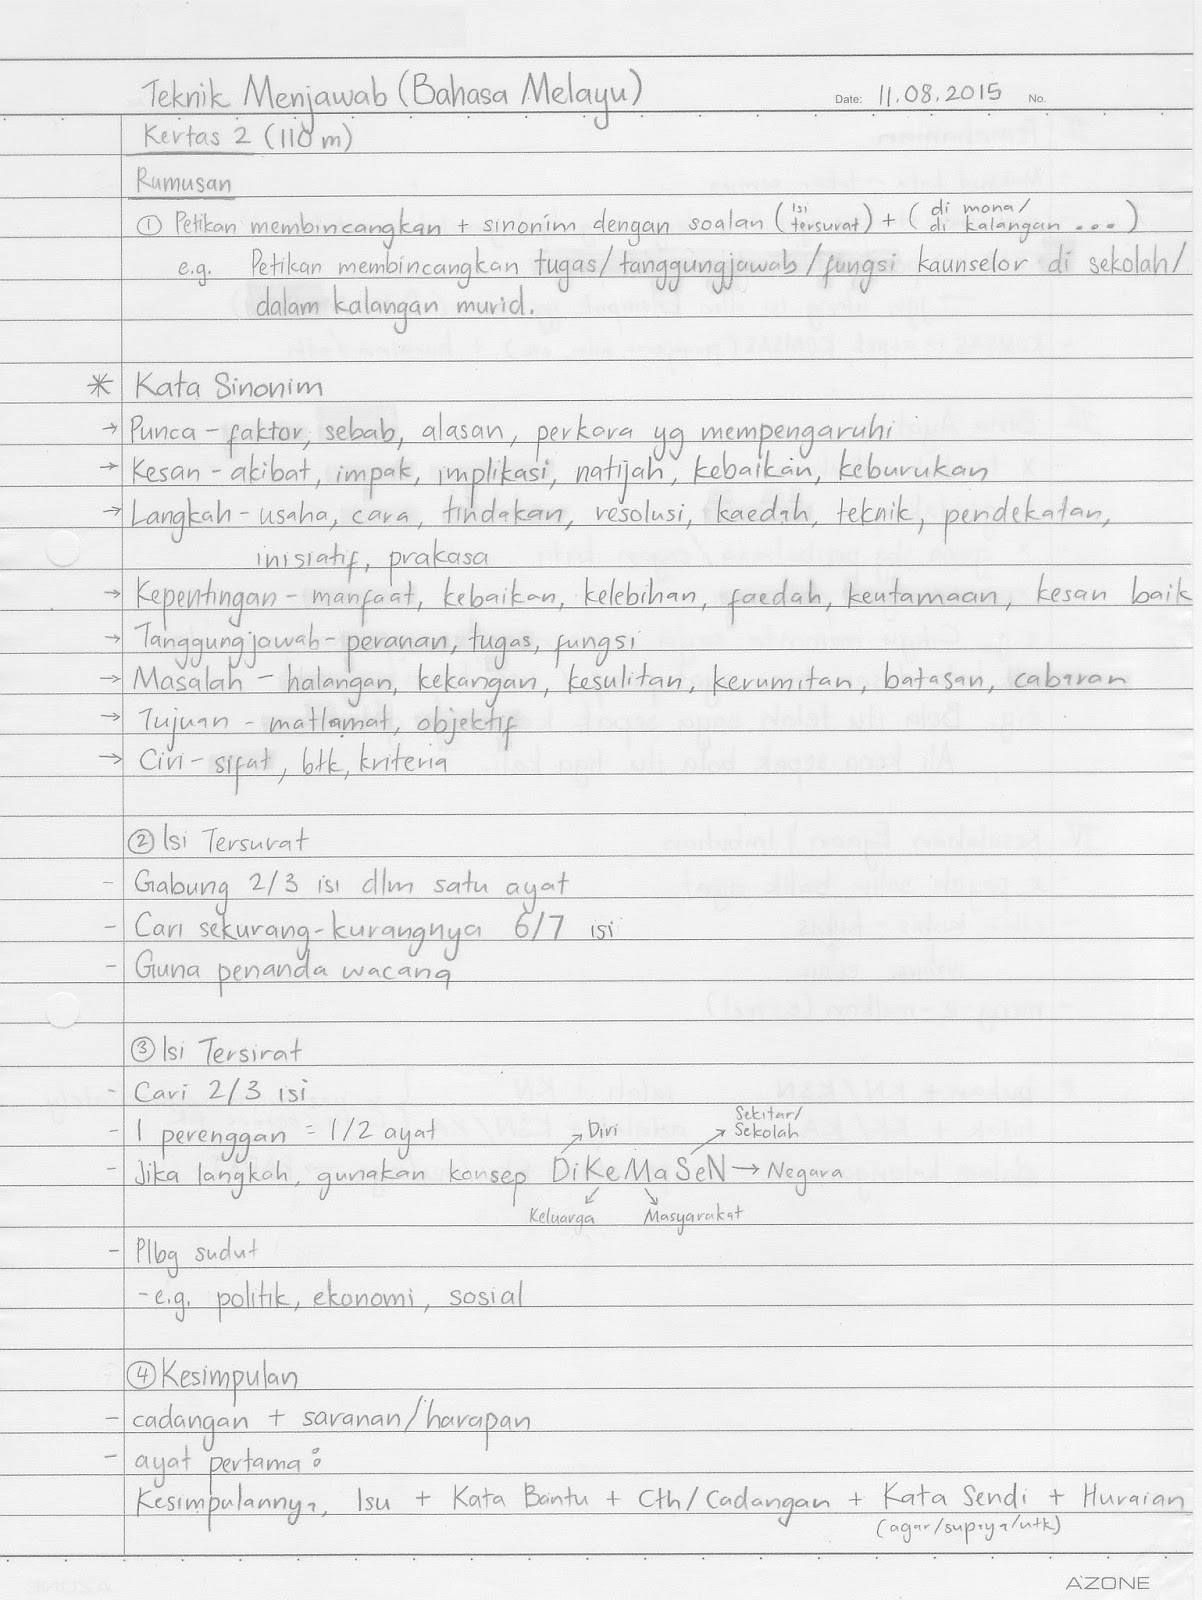 Teknik Menjawab (Bahasa Melayu)
Date: 11.08.2015 No.
Kertas 2 (110 m)
Rumusan
① Petikan membincangkan + sinonim dengan soalan (isi tersurat) + (di mana/ di kalangan ...)
e.g. Petikan membincangkan tugas/tanggungjawab/fungsi kaunselor di sekolah/
dalam kalangan murid.
* Kata Sinonim
→ Punca - faktor, sebab, alasan, perkara yg mempengaruhi
→ Kesan - akibat, impak, implikasi, natijah, kebaikan, keburukan
→ Langkah - usaha, cara, tindakan, resolusi, kaedah, teknik, pendekatan,
inisiatif, prakasa
→ Kepentingan - manfaat, kebaikan, kelebihan, faedah, keutamaan, kesan baik
→ Tanggungjawab - peranan, tugas, fungsi
→ Masalah - halangan, kekangan, kesulitan, kerumitan, batasan, cabaran
→ Tujuan - matlamat, objektif
→ Ciri - sifat, btk, kriteria
② Isi Tersurat
- Gabung 2/3 isi dlm satu ayat
- Cari sekurang-kurangnya 6/7 isi
- Guna penanda wacana
③ Isi Tersirat
- Cari 2/3 isi
- 1 perenggan = 1/2 ayat
Diri
Sekitar/
Sekolah
- Jika langkah, gunakan konsep DiKeMaSeN → Negara
Keluarga Masyarakat
- Plbg sudut
- e.g. politik, ekonomi, sosial
④ Kesimpulan
- cadangan + saranan/harapan
- ayat pertama :
Kesimpulannya, Isu + Kata Bantu + Cth/Cadangan + Kata Sendi + Huraian
(agar/supaya/utk)
A'ZONE